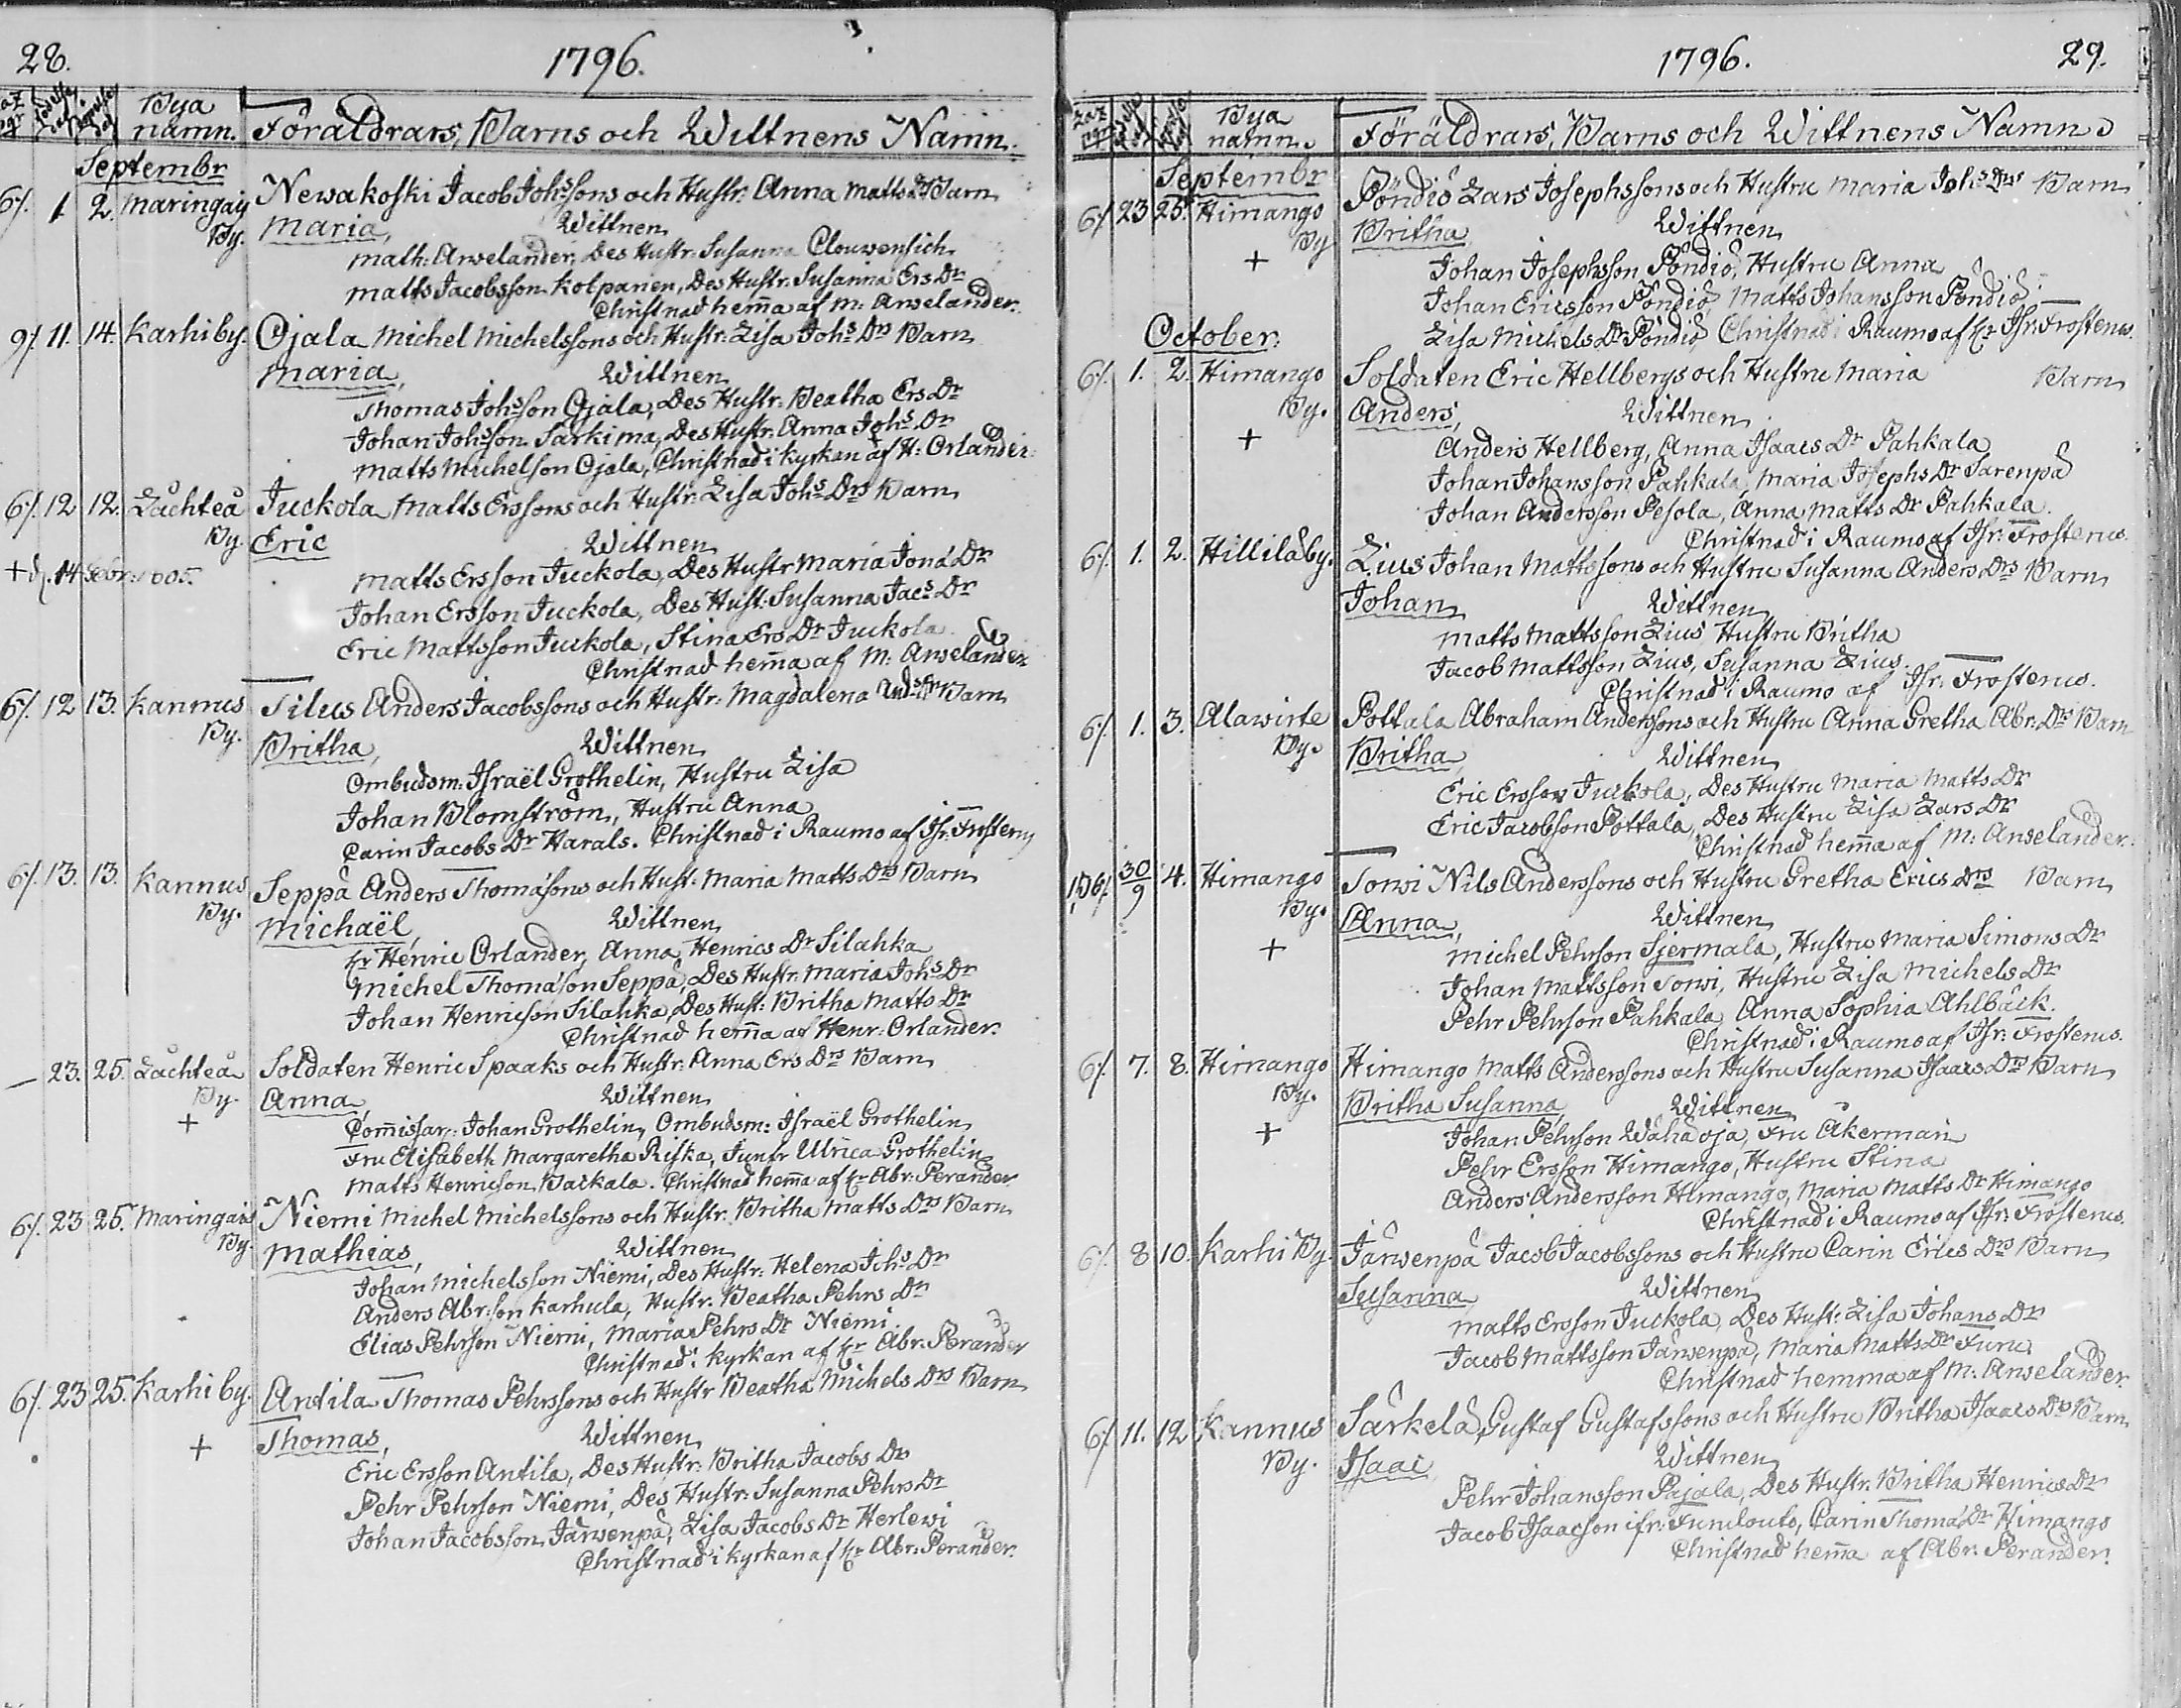 28.
1796.
Bya
namn.
Föräldrars, Barns och Wittnens Namn.
Septembr
6/. 1. 2. Maringais Newakoski Jacob Johssons och Hustr: Anna Matts Drs Barn
By. Maria, Wittnen
Math: Anselander, Des Hustr: Susanna Clouwensich
Matts Jacobsson Kolpanen, Des Hustr: Susanna Ers Dr
Christnad hem̄a af M: Anselander.
9/. 11. 14. Karhi by. Ojala Michel Michelssons och Hustr: Lisa Johs Drs Barn
Maria, Wittnen
Thomas Johsson Ojala, Des Hustr: Beatha Ers Dr
Johan Johsson Särkima, Des Hustr: Anna Johs Dr
Matts Michelson Ojala, Christnad i Kyrkan af H: Orlander
6/. 12 12. Lachteå Juckola Matts Erssons och Hustr: Lisa Johs Drs Barn
By. Eric Wittnen
+ d. 14 Febr: 1805. Matts Ersson Juckola, Des Hustr Maria Jona Dr
Johan Ersson Juckola, Des Hust: Susanna Jacs Dr
Eric Mattsson Juckola, Stina Ers Dr Juckola
Christnad hem̄a af M: Anselander
6/. 12 13. Kannus Tilus Anders Jacobssons och Hustr: Magdalena Ands Drs Barn
By. Britha, Wittnen
Ombudsm: Israël Grothelin, Hustru Lisa
Johan Blomström, Hustru Anna
Carin Jacobs Dr Harals. Christnad i Raumo af Isr: Frosterus
6/. 13. 13. Kannus Seppä Anders Thomasons och Hust: Maria Matts Drs Barn
By. Michaël, Wittnen
Hr Henric Orlander, Anna Henrics Dr Silahka
Michel Thomason Seppä, Des Hustr: Maria Johs Dr
Johan Henricson Silahka, Des Hust: Britha Matts Dr
Christnad hem̄a af Henr: Orlander.
— 23. 25. Lachteå Soldaten Henric Spaaks och Hustr: Anna Ers Drs Barn
By. Anna Wittnen
+ Com̄issar: Johan Grothelin, Ombudsm: Israël Grothelin
Fru Elisabeth Margaretha Riska, Jumfr Ulrica Grothelin
Matts Henricson Backala. Christnad hem̄a af Hr Abr: Perander
6/. 23 25. Maringais Niemi Michel Michelssons och Hustr: Britha Matts Drs Barn
By. Mathias, Wittnen
Johan Michelsson Niemi, Des Hustr: Helena Johs Dr
Anders Abr:son Karhula, Hustr: Beatha Pehrs Dr
Elias Pehrson Niemi, Maria Pehrs Dr Niemi
Christnad i Kyrkan af Hr Abr: Perander
6/. 23 25. Karhi by. Antila Thomas Pehrssons och Hustr Beatha Michels Drs Barn
+ Thomas, Wittnen
Eric Ersson Antila, Des Hustr: Britha Jacobs Dr
Pehr Pehrson Niemi, Des Hustr: Susanna Pehrs Dr
Johan Jacobsson Järwenpä, Lisa Jacobs Dr Herlewi
Christnad i Kyrkan af Hr Abr: Perander.
1796.
29.
Bya
namn.
Föräldrars, Barns och Wittnens Namn
Septembr
6/. 23 25. Himango Pöndiö Lars Josephssons och Hustru Maria Johs Drs Barn
By Britha Wittnen
+ Johan Josephsson Pöndiö, Hustru Anna
Johan Ericsson Pöndiö, Matts Johansson Pöndiö
Lisa Michels Dr Pöndiö Christnad i Raumo af Hr Isr: Frosterus.
October.
6/. 1. 2. Himango Soldaten Eric Hellbergs och Hustru Maria Barn
By. Anders, Wittnen
+ Anders Hellberg, Anna Isaacs Dr Pahkala
Johan Johansson Pahkala, Maria Josephs Dr Sarenpä
Johan Andersson Pesola, Anna Matts Dr Pahkala.
Christnad i Raumo af Isr: Frosterus.
6/. 1. 2. Hillilä by. Lius Johan Mattssons och Hustru Susanna Anders Drs Barn
Johan Wittnen
Matts Mattsson Lius, Hustru Britha
Jacob Mattsson Lius, Susanna Lius.
Christnad i Raumo af Isr: Frosterus.
6/. 1. 3. Alawirte Pottala Abraham Anderssons och Hustru Anna Gretha Abr: Drs Barn
By. Britha Wittnen
Eric Ersson Juckola, Des Hustru Maria Matts Dr
Eric Jacobson Pottala, Des Hustru Lisa Lars Dr
Christnad hem̄a af M: Anselander.
30/9 4. Himango Torwi Nils Anderssons och Hustru Gretha Erics Drs Barn
By. Anna, Wittnen
+ Michel Pehrson Tjermala, Hustru Maria Simons Dr
Johan Mattsson Torwi, Hustru Lisa Michels Dr
Pehr Pehrson Pahkala, Anna Sophia Ahlbäck.
Christnad i Raumo af Isr: Frosterus.
6/. 7. 8. Himango Himango Matts Anderssons och Hustru Susanna Isaacs Drs Barn
By. Britha Susanna Wittnen
+ Johan Pehrson Wähäoja, Fru Åkerman
Pehr Ersson Himango, Hustru Stina
Anders Andersson Himango, Maria Matts Dr Himango
Christnad i Raumo af Isr: Frosterus.
6/. 8 10. Karhi By. Järwenpä Jacob Jacobssons och Hustru Carin Erics Drs Barn
Susanna Wittnen
Matts Ersson Juckola, Des Hust: Lisa Johans Dr
Jacob Mattsson Järwenpä, Maria Matts Dr Furu
Christnad hemma af M: Anselander.
6/. 11. 12 Kannus Särkelä Gustaf Gustafssons och Hustru Britha Isaacs Drs Barn
By. Isaac Wittnen
Pehr Johansson Pajala, Des Hustr: Britha Henrics Dr
Jacob Isaacson ifr: Carin Thoma Dr Himango
Christnad hem̄a af Abr: Perander.